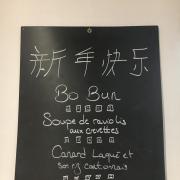 新年快乐
Bo Bun
Soupe de raviolis
aux crevettes
Canard Laqué et
son riz cantonais